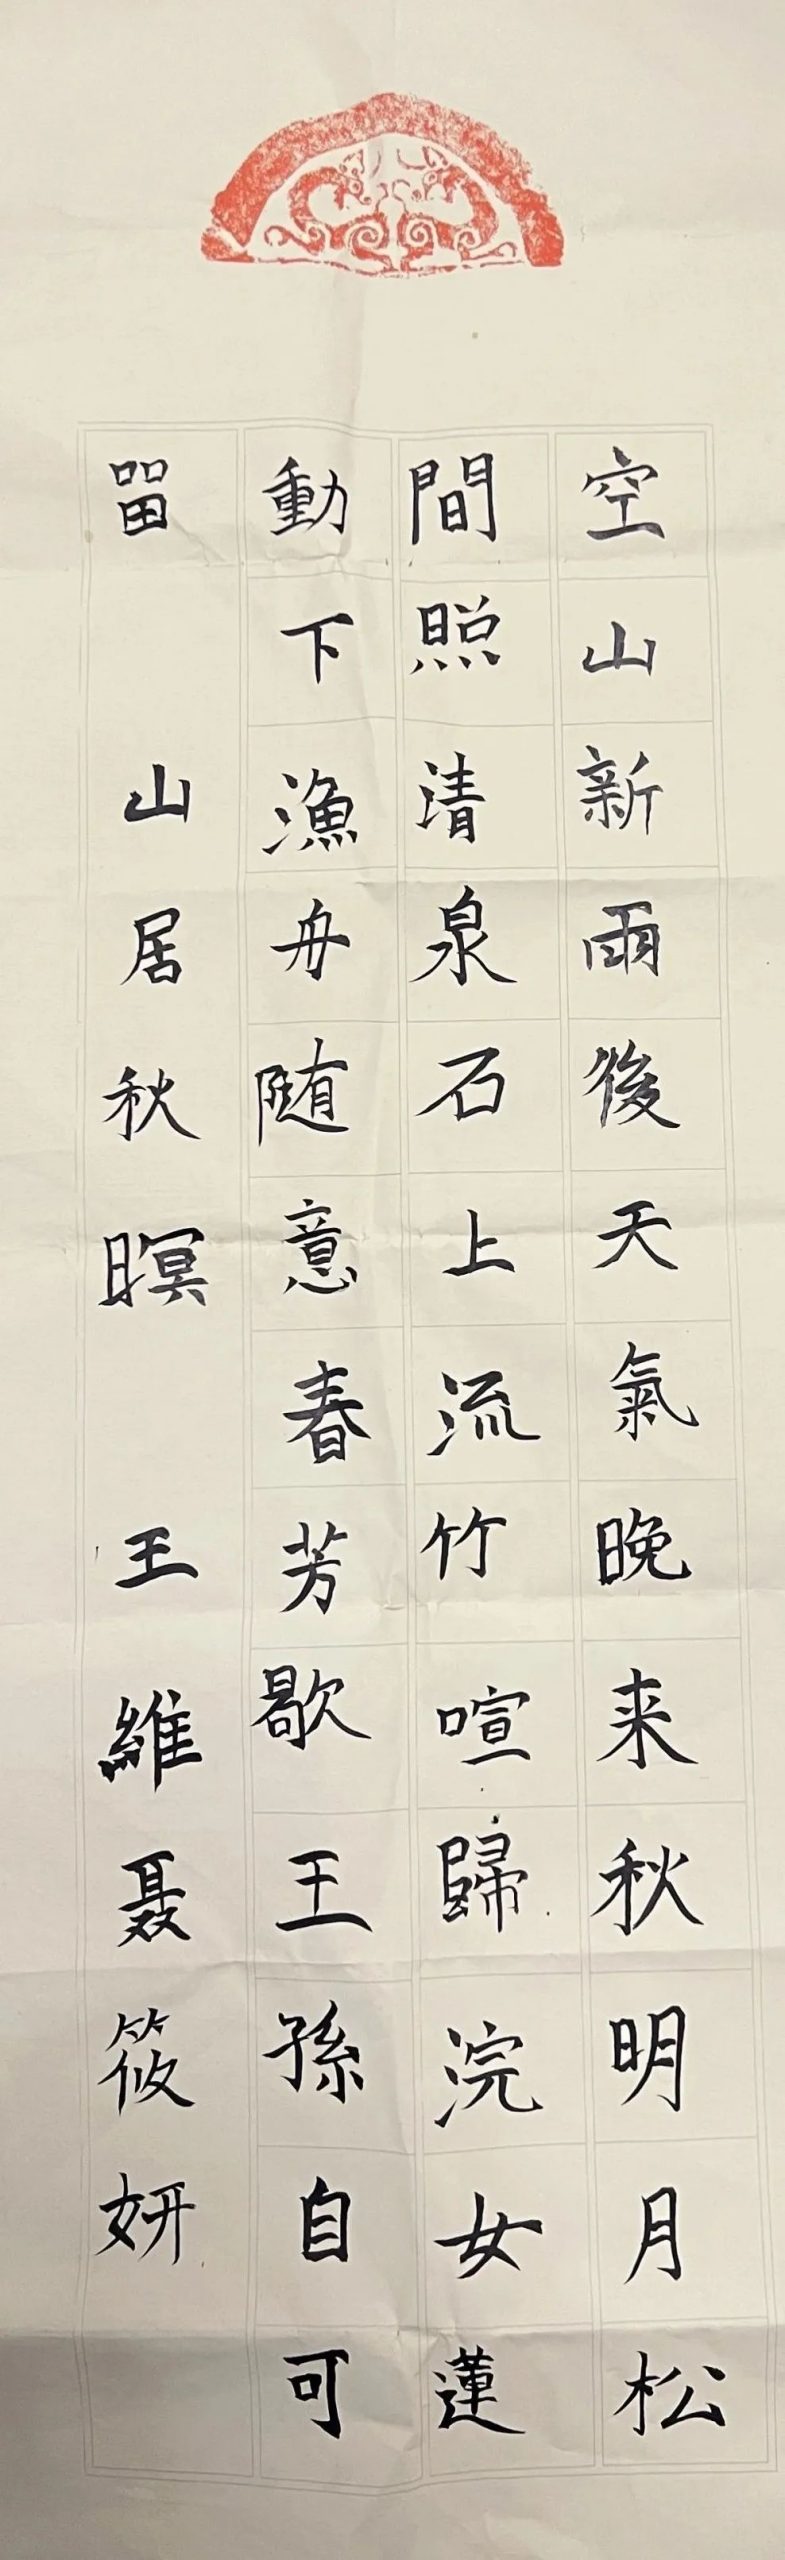 空山新雨後天氣晚来秋明月松
間照清泉石上流竹喧歸浣女蓮
動下漁舟随意春芳歇王孫自可
畱 山居秋暝 王維聂筱妍